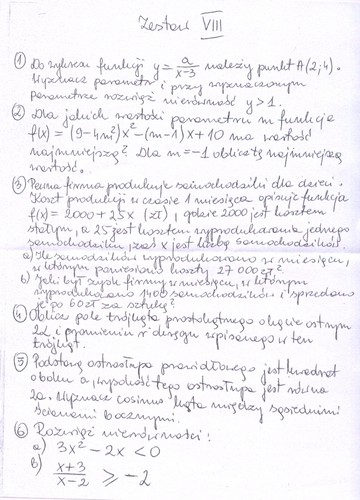 Zestaw VIII
① Do wykresu funkcji y = a/(x-3) należy punkt A(2;4).
Wyznacz parametr i przy wyznaczonym
parametrze rozwiąż nierówność y > 1.
② Dla jakich wartości parametru m funkcja
f(x) = (9-4m²)x² - (m-1)x + 10 ma wartość
najmniejszą? Dla m = -1 oblicz tę najmniejszą
wartość.
③ Pewna firma produkuje samochodziki dla dzieci.
Koszt produkcji w czasie 1 miesiąca opisuje funkcja
f(x) = 2000 + 25x (zł), gdzie 2000 jest kosztem
stałym, a 25 jest kosztem wyprodukowania jednego
samochodziku, zaś x jest liczbą samochodzików
a) Ile samochodzików wyprodukowano w miesiącu,
w którym poniesiono koszty 27 000 zł?
b) Jaki był zysk firmy w miesiącu, w którym
wyprodukowano 1400 samochodzików i sprzedano
je po 60 zł za sztukę?
④ Oblicz pole trójkąta prostokątnego o kącie ostrym
2α i promieniu r okręgu wpisanego w ten
trójkąt.
⑤ Podstawą ostrosłupa prawidłowego jest kwadrat
o boku a, wysokość tego ostrosłupa jest równa
2a. Wyznacz cosinus kąta między sąsiednimi
ścianami bocznymi.
⑥ Rozwiąż nierówności:
a) 3x² - 2x < 0
b) (x+3)/(x-2) ≥ -2